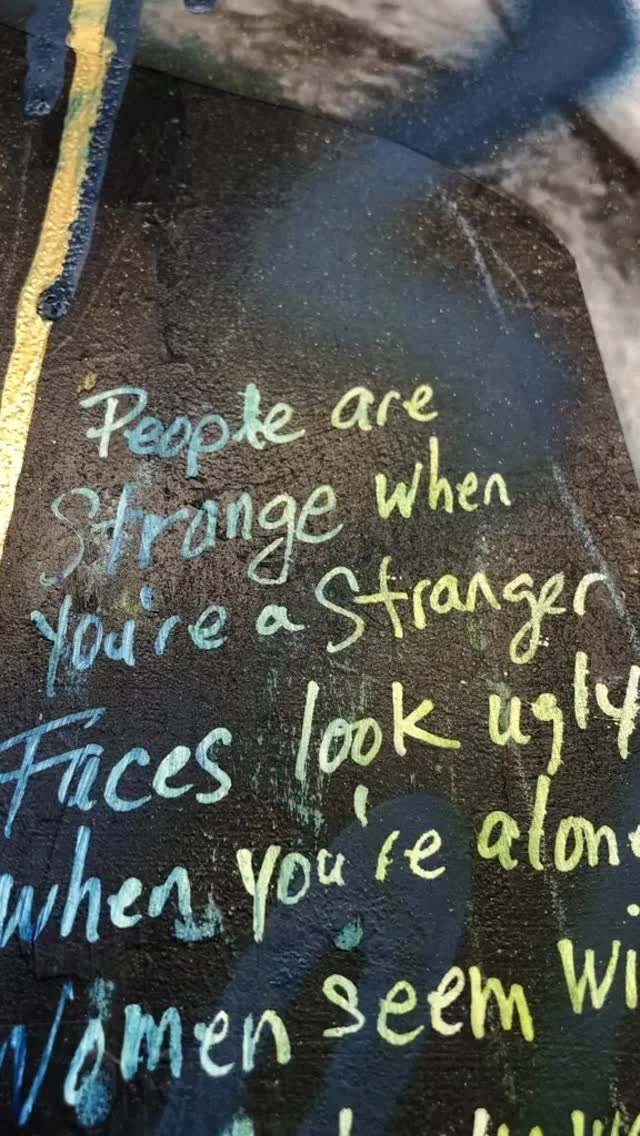 People are
Strange when
you're a Stranger
Faces look ugly
when you're alone
Women seem Wi